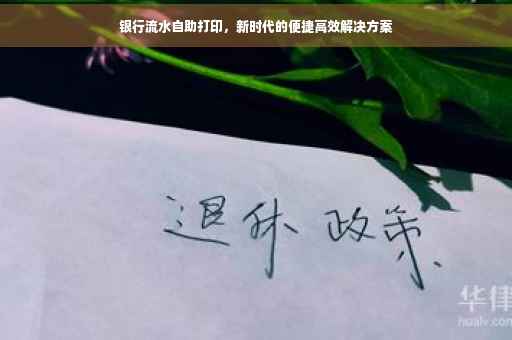 银行流水自助打印，新时代的便捷高效解决方案
退休 政策
华律
hualv.com